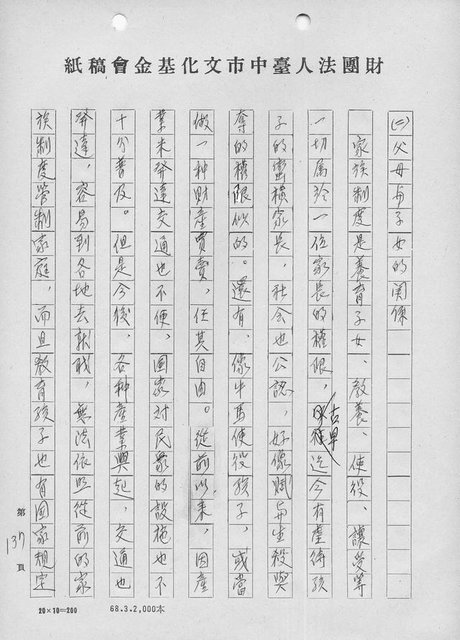 財團法人臺中市文化基金會稿紙
(二)父母與子女的関係
家族制度是養育子女、教養、使役、讓受等
一切属於一位家長的權限，古早迄今有虐待孩
子的蠻橫家長，社会也公認，好像賦與生殺與
奪的權限似的。還有，像牛馬使役孩子，或當
做一种財產買賣，任其自由。從前以來，因產
業未發達交通也不便，国家对民眾的設施也不
十分普及。但是今後，各种產業興起，交通也
發達，容易到各地去就職，無法依照從前的家
族制度管制家庭，而且教育孩子也有国家規定
第137頁
20×10=200
68.3.2,000本